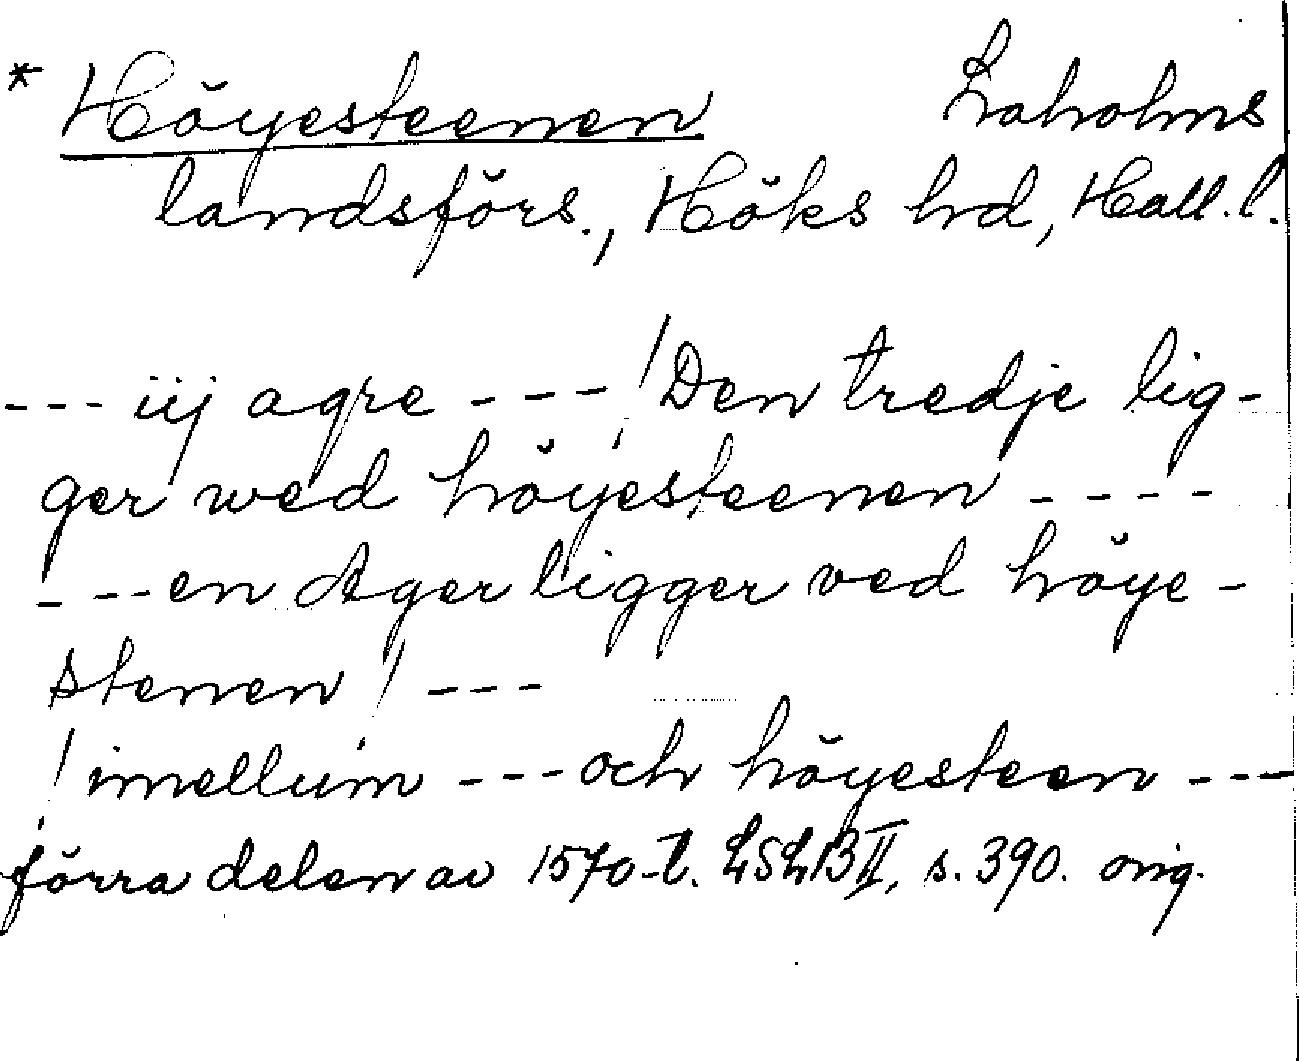 * Höyesteenen Laholms
landsförs., Höks hd, Hall. l.
--- iij agre ---/Den tredje lig-
ger wed höyesteenen ----
---en Ager ligger ved höye-
stenen/---
/imellum --- och höyesteen ---
förra delen av 1570-t. LSLB II, s. 390. orig.